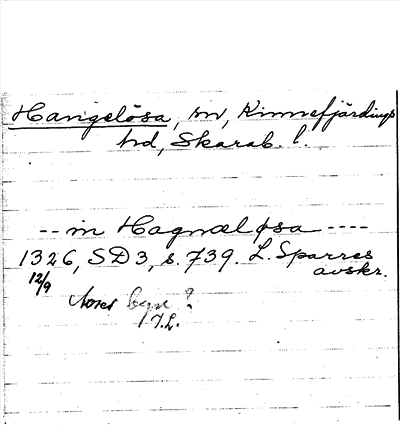 Hangelösa, sn, Kinnefjärdings
hd, Skarab. l.
-- in Hagnæløsa ----
1326, SD 3, s. 739. L. Sparres
avskr.
12/9
byn?
/ I.L.